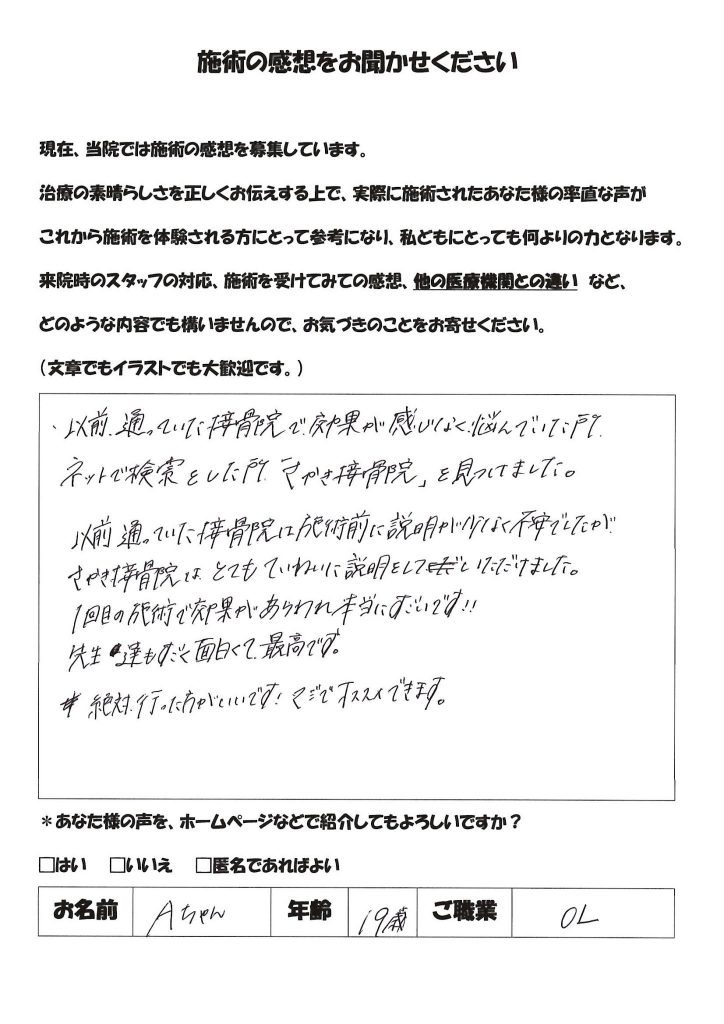 施術の感想をお聞かせください
現在、当院では施術の感想を募集しています。
治療の素晴らしさを正しくお伝えする上で、実際に施術されたあなた様の率直な声が
これから施術を体験される方にとって参考になり、私どもにとっても何よりの力となります。
来院時のスタッフの対応、施術を受けてみての感想、他の医療機関との違い など、
どのような内容でも構いませんので、お気づきのことをお寄せください。
（文章でもイラストでも大歓迎です。）
以前、通っていた接骨院で、効果が感じなく、悩んでいた所、
ネットで検索をした所、「さかき接骨院」を見つけました。
以前通っていた接骨院は施術前に説明が少なく不安でしたが
さかき接骨院は、とてもていねいに説明をしていただけました。
1回目の施術で効果があらわれ本当にすごいです!!
先生達もすごく面白くて、最高です。
絶対、行った方がいいです! マジでオススメできます。
＊あなた様の声を、ホームページなどで紹介してもよろしいですか？
□はい □いいえ □匿名であればよい
お名前 Aちゃん 年齢 19歳 ご職業 OL